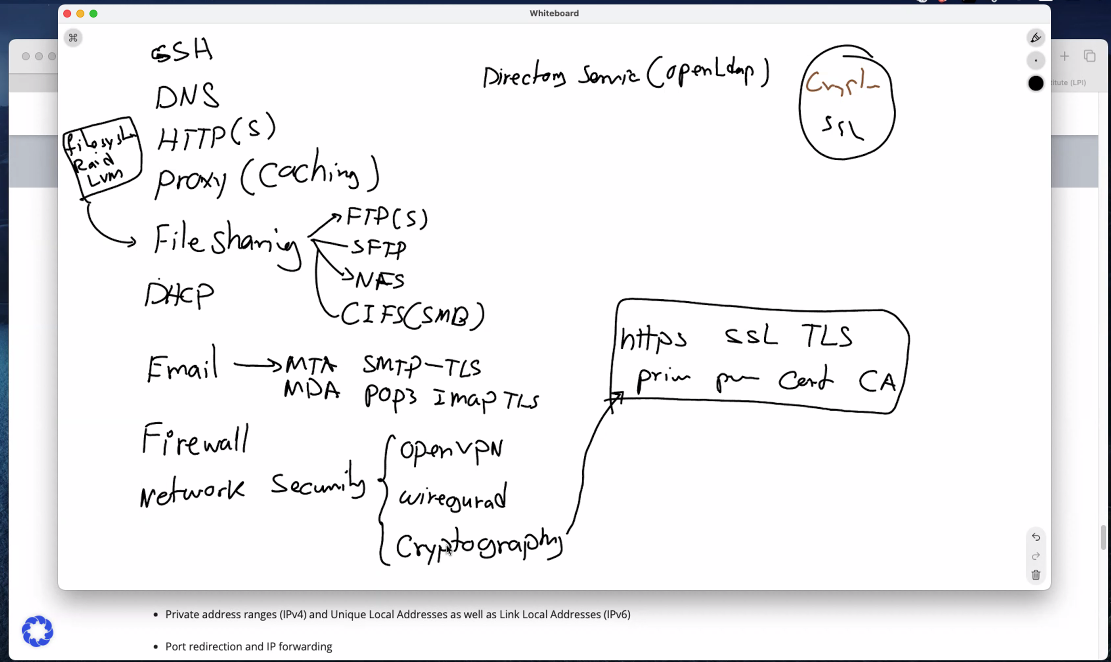 Whiteboard
SSH
DNS
HTTP(S)
Proxy (Caching)
Raid
LVM
File Sharing
FTP(S)
SFTP
NFS
CIFS(SMB)
DHCP
Email
MTA SMTP-TLS
MDA POP3 Imap TLS
Firewall
Network Security
OpenVPN
wiregurad
Cryptography
Directory Servic (OpenLdap)
SSL
https SSL TLS
Cert CA
titute (LPI)
Private address ranges (IPv4) and Unique Local Addresses as well as Link Local Addresses (IPv6)
Port redirection and IP forwarding